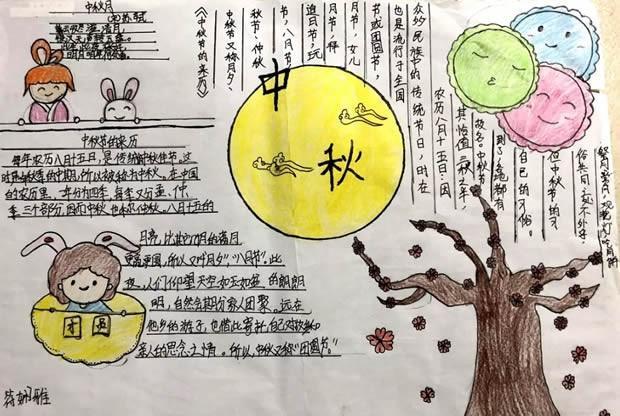 中秋月
中秋节的来历
每年农历八月十五日，是传统的中秋佳节。这
时是年秋季的中期，所以被称为中秋。在中国
的农历里，一年分为四季，每季又分孟、仲、
季三个部分，因而中秋也称仲秋。八月十五的
月亮，比其它几个月的满月
更圆，所以又叫月夕”“八月节”。此
夜，人们仰望天空如玉如盘的朗朗
明，自然会期盼家人团聚。远在
他乡的游子，也借此寄补自己对故乡和
亲人的思念之情。所以，中秋又称“团圆节”。
团圆
中
秋
《中秋节的来历》
中秋节又称月夕、
秋节、仲秋
节，八月节，
追月节，玩
月节，拜
月节，女儿
节或团圆节，
也是流行于全国
众多民族中的传统节日，时在
农历八月十五日：因
其恰值三秋之半，
故名。中秋节
到了，各地都有
自己的习俗。
但中秋节的习
俗共同，就不外乎
祭月赏月，观花灯，吃月饼